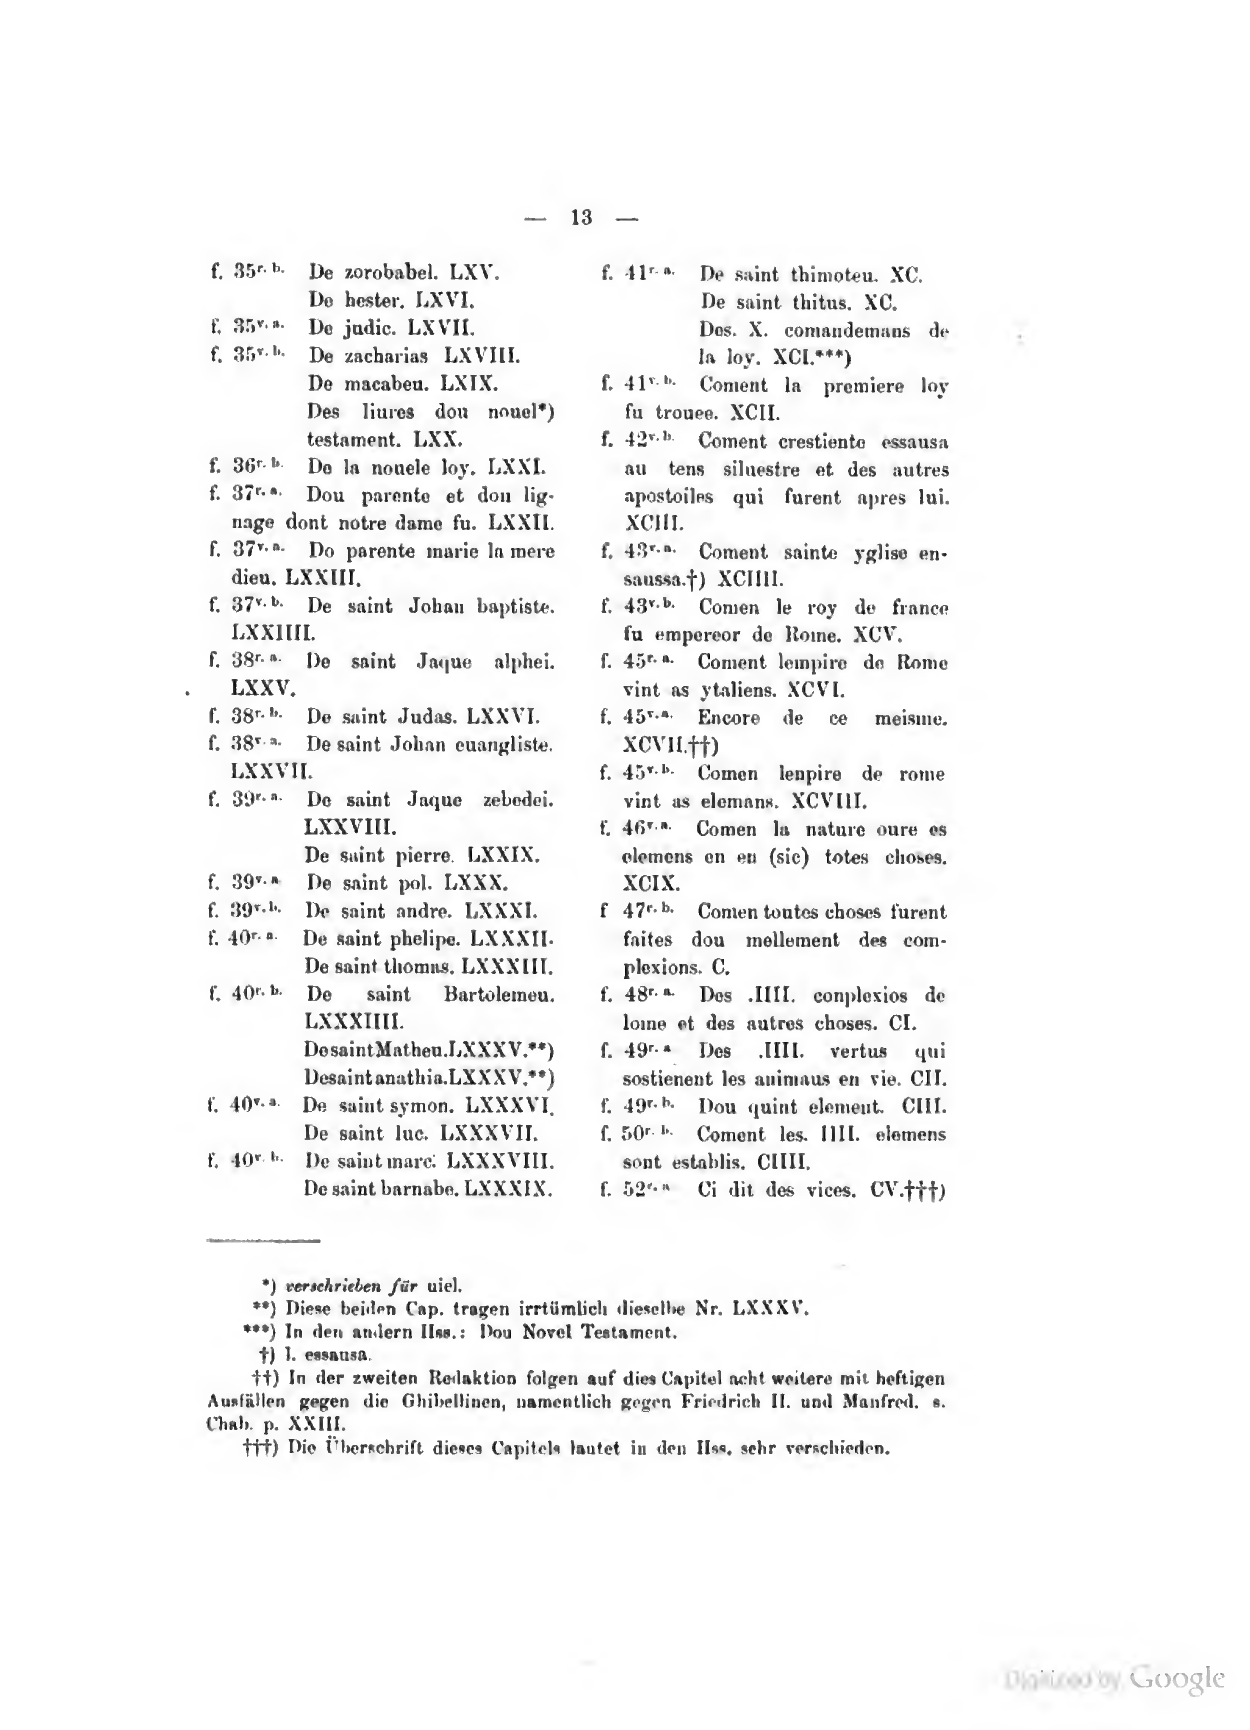 — 13 —
f. 35r. b. De zorobabel. LXV.
De hester. LXVI.
f. 35v. a. De judic. LXVII.
f. 35v. b. De zacharias LXVIII.
De macabeu. LXIX.
Des liures dou nouel*)
testament. LXX.
f. 36r. b. De la nouele loy. LXXI.
f. 37r. a. Dou parente et dou lig-
nage dont notre dame fu. LXXII.
f. 37v. a. Do parente marie la mere
dieu. LXXIII.
f. 37v. b. De saint Johan baptiste.
LXXIIII.
f. 38r. a. De saint Jaque alphei.
LXXV.
f. 38r. b. De saint Judas. LXXVI.
f. 38v. a. De saint Johan euangliste.
LXXVII.
f. 39r. a. De saint Jaque zebedei.
LXXVIII.
De saint pierre. LXXIX.
f. 39v. a De saint pol. LXXX.
f. 39v. b. De saint andre. LXXXI.
f. 40r. a. De saint phelipe. LXXXII.
De saint thomas. LXXXIII.
f. 40r. b. De saint Bartolemeu.
LXXXIIII.
De saint Matheu. LXXXV.**)
De saint anathia. LXXXV.**)
f. 40v. a. De saint symon. LXXXVI.
De saint luc. LXXXVII.
f. 40v. b. De saint marc. LXXXVIII.
De saint barnabe. LXXXIX.
f. 41r. a. De saint thimoteu. XC.
De saint thitus. XC.
Des. X. comandemans de
la loy. XCI.***)
f. 41v. b. Coment la premiere loy
fu trouee. XCII.
f. 42v. b. Coment crestiente essausa
au tens siluestre et des autres
apostoiles qui furent apres lui.
XCIII.
f. 43r. a. Coment sainte yglise en-
saussa.†) XCIIII.
f. 43v. b. Comen le roy de france
fu empereor de Rome. XCV.
f. 45r. a. Coment lempire de Rome
vint as ytaliens. XCVI.
f. 45v. a. Encore de ce meisme.
XCVII.††)
f. 45v. b. Comen lenpire de rome
vint as elemans. XCVIII.
f. 46v. a. Comen la nature oure es
elemens en en (sic) totes choses.
XCIX.
f 47r. b. Comen toutes choses furent
faites dou mellement des com-
plexions. C.
f. 48r. a. Des .IIII. conplexios de
lome et des autres choses. CI.
f. 49r. a Des .IIII. vertus qui
sostienent les animaus en vie. CII.
f. 49r. b. Dou quint element. CIII.
f. 50r. b. Coment les. IIII. elemens
sont establis. CIIII.
f. 52r. a Ci dit des vices. CV.†††)
*) verschrieben für uiel.
**) Diese beiden Cap. tragen irrtümlich dieselbe Nr. LXXXV.
***) In den andern Hss.: Dou Novel Testament.
†) l. essausa.
††) In der zweiten Redaktion folgen auf dies Capitel acht weitere mit heftigen
Ausfällen gegen die Ghibellinen, namentlich gegen Friedrich II. und Manfred. s.
Chab. p. XXIII.
†††) Die Überschrift dieses Capitels lautet in den Hss. sehr verschieden.
Digitized by Google